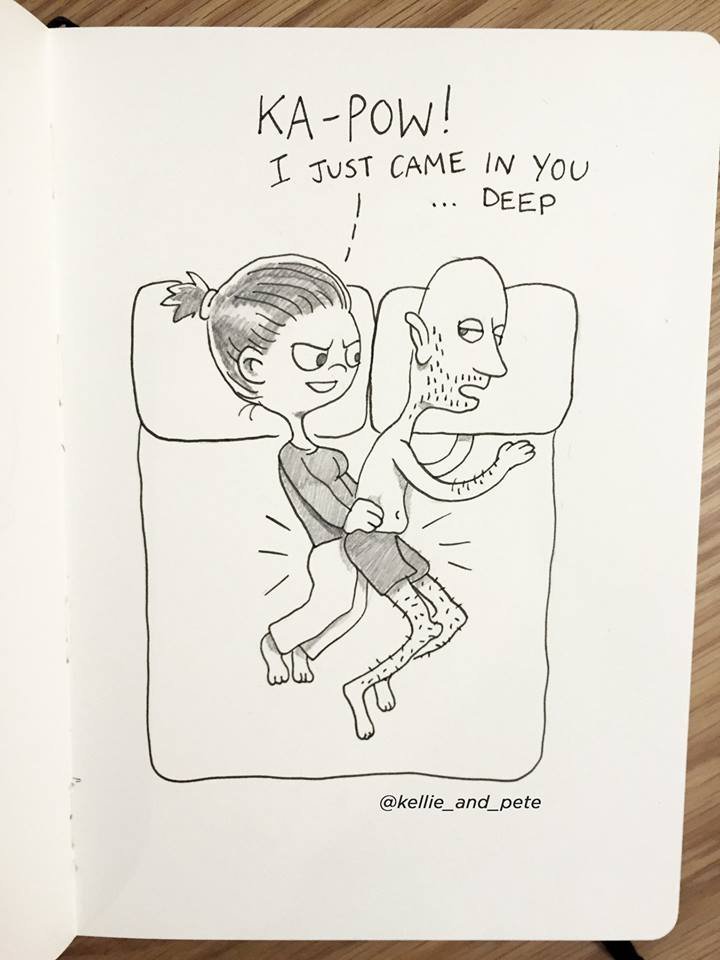 KA-POW!
I JUST CAME IN YOU
... DEEP
@kellie_and_pete